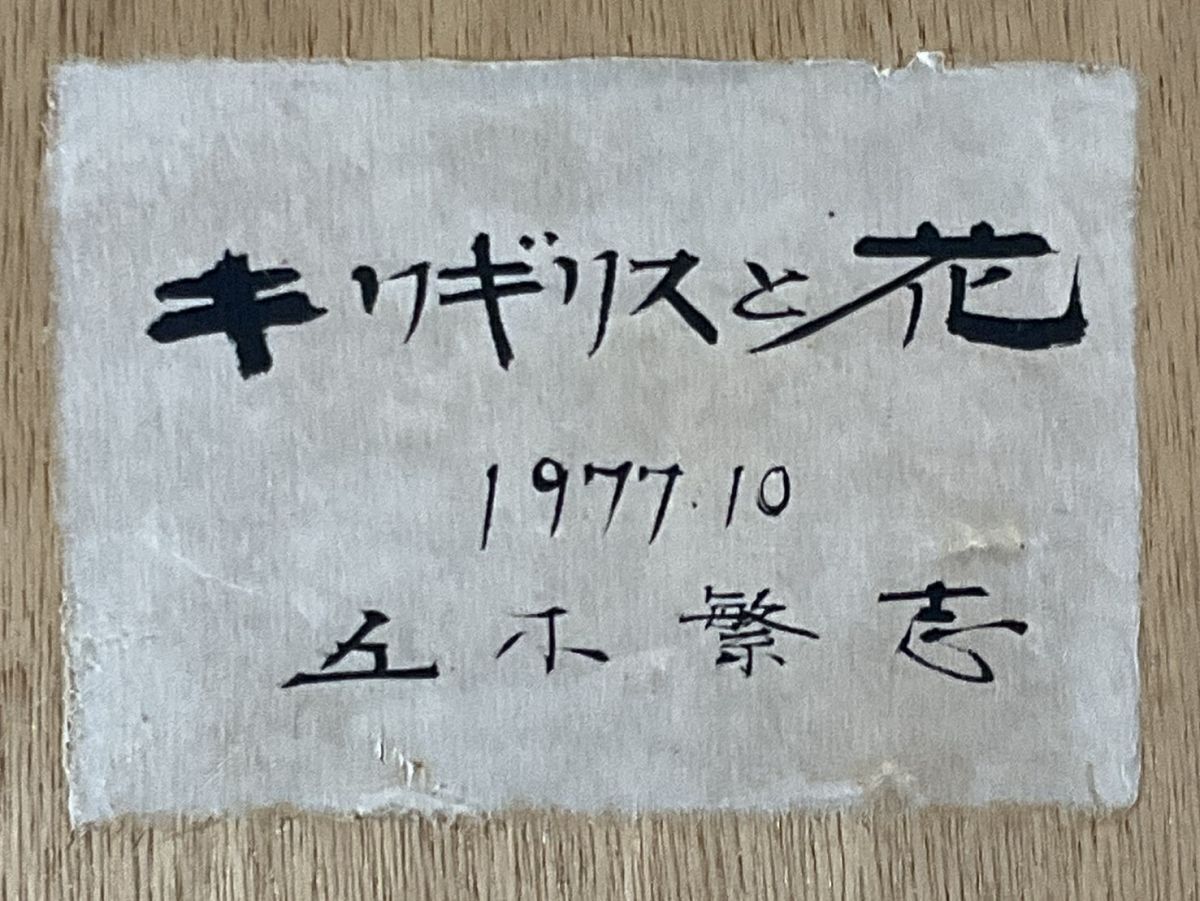 キリギリスと花
1977.10
丘木繁志